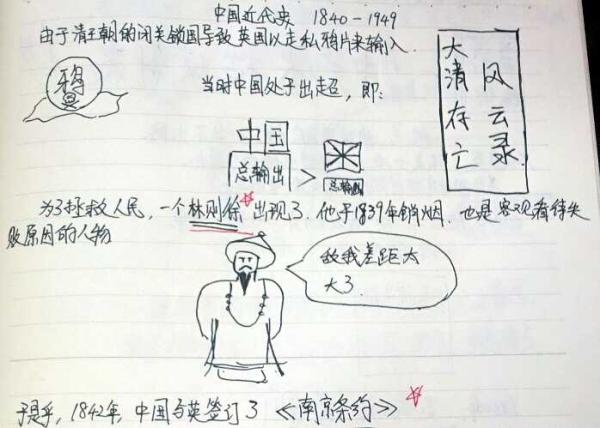 中国近代史 1840-1949
由于清王朝的闭关锁国导致英国以走私鸦片来输入.
鸦
当时中国处于出超，即:
中国
总输出
>
总输出
大清存亡
风云录
为了拯救人民，一个林则徐出现了.他于1839年销烟.也是客观看待失
败原因的人物
敌我差距太
大了.
于是乎，1842年，中国与英签订了《南京条约》